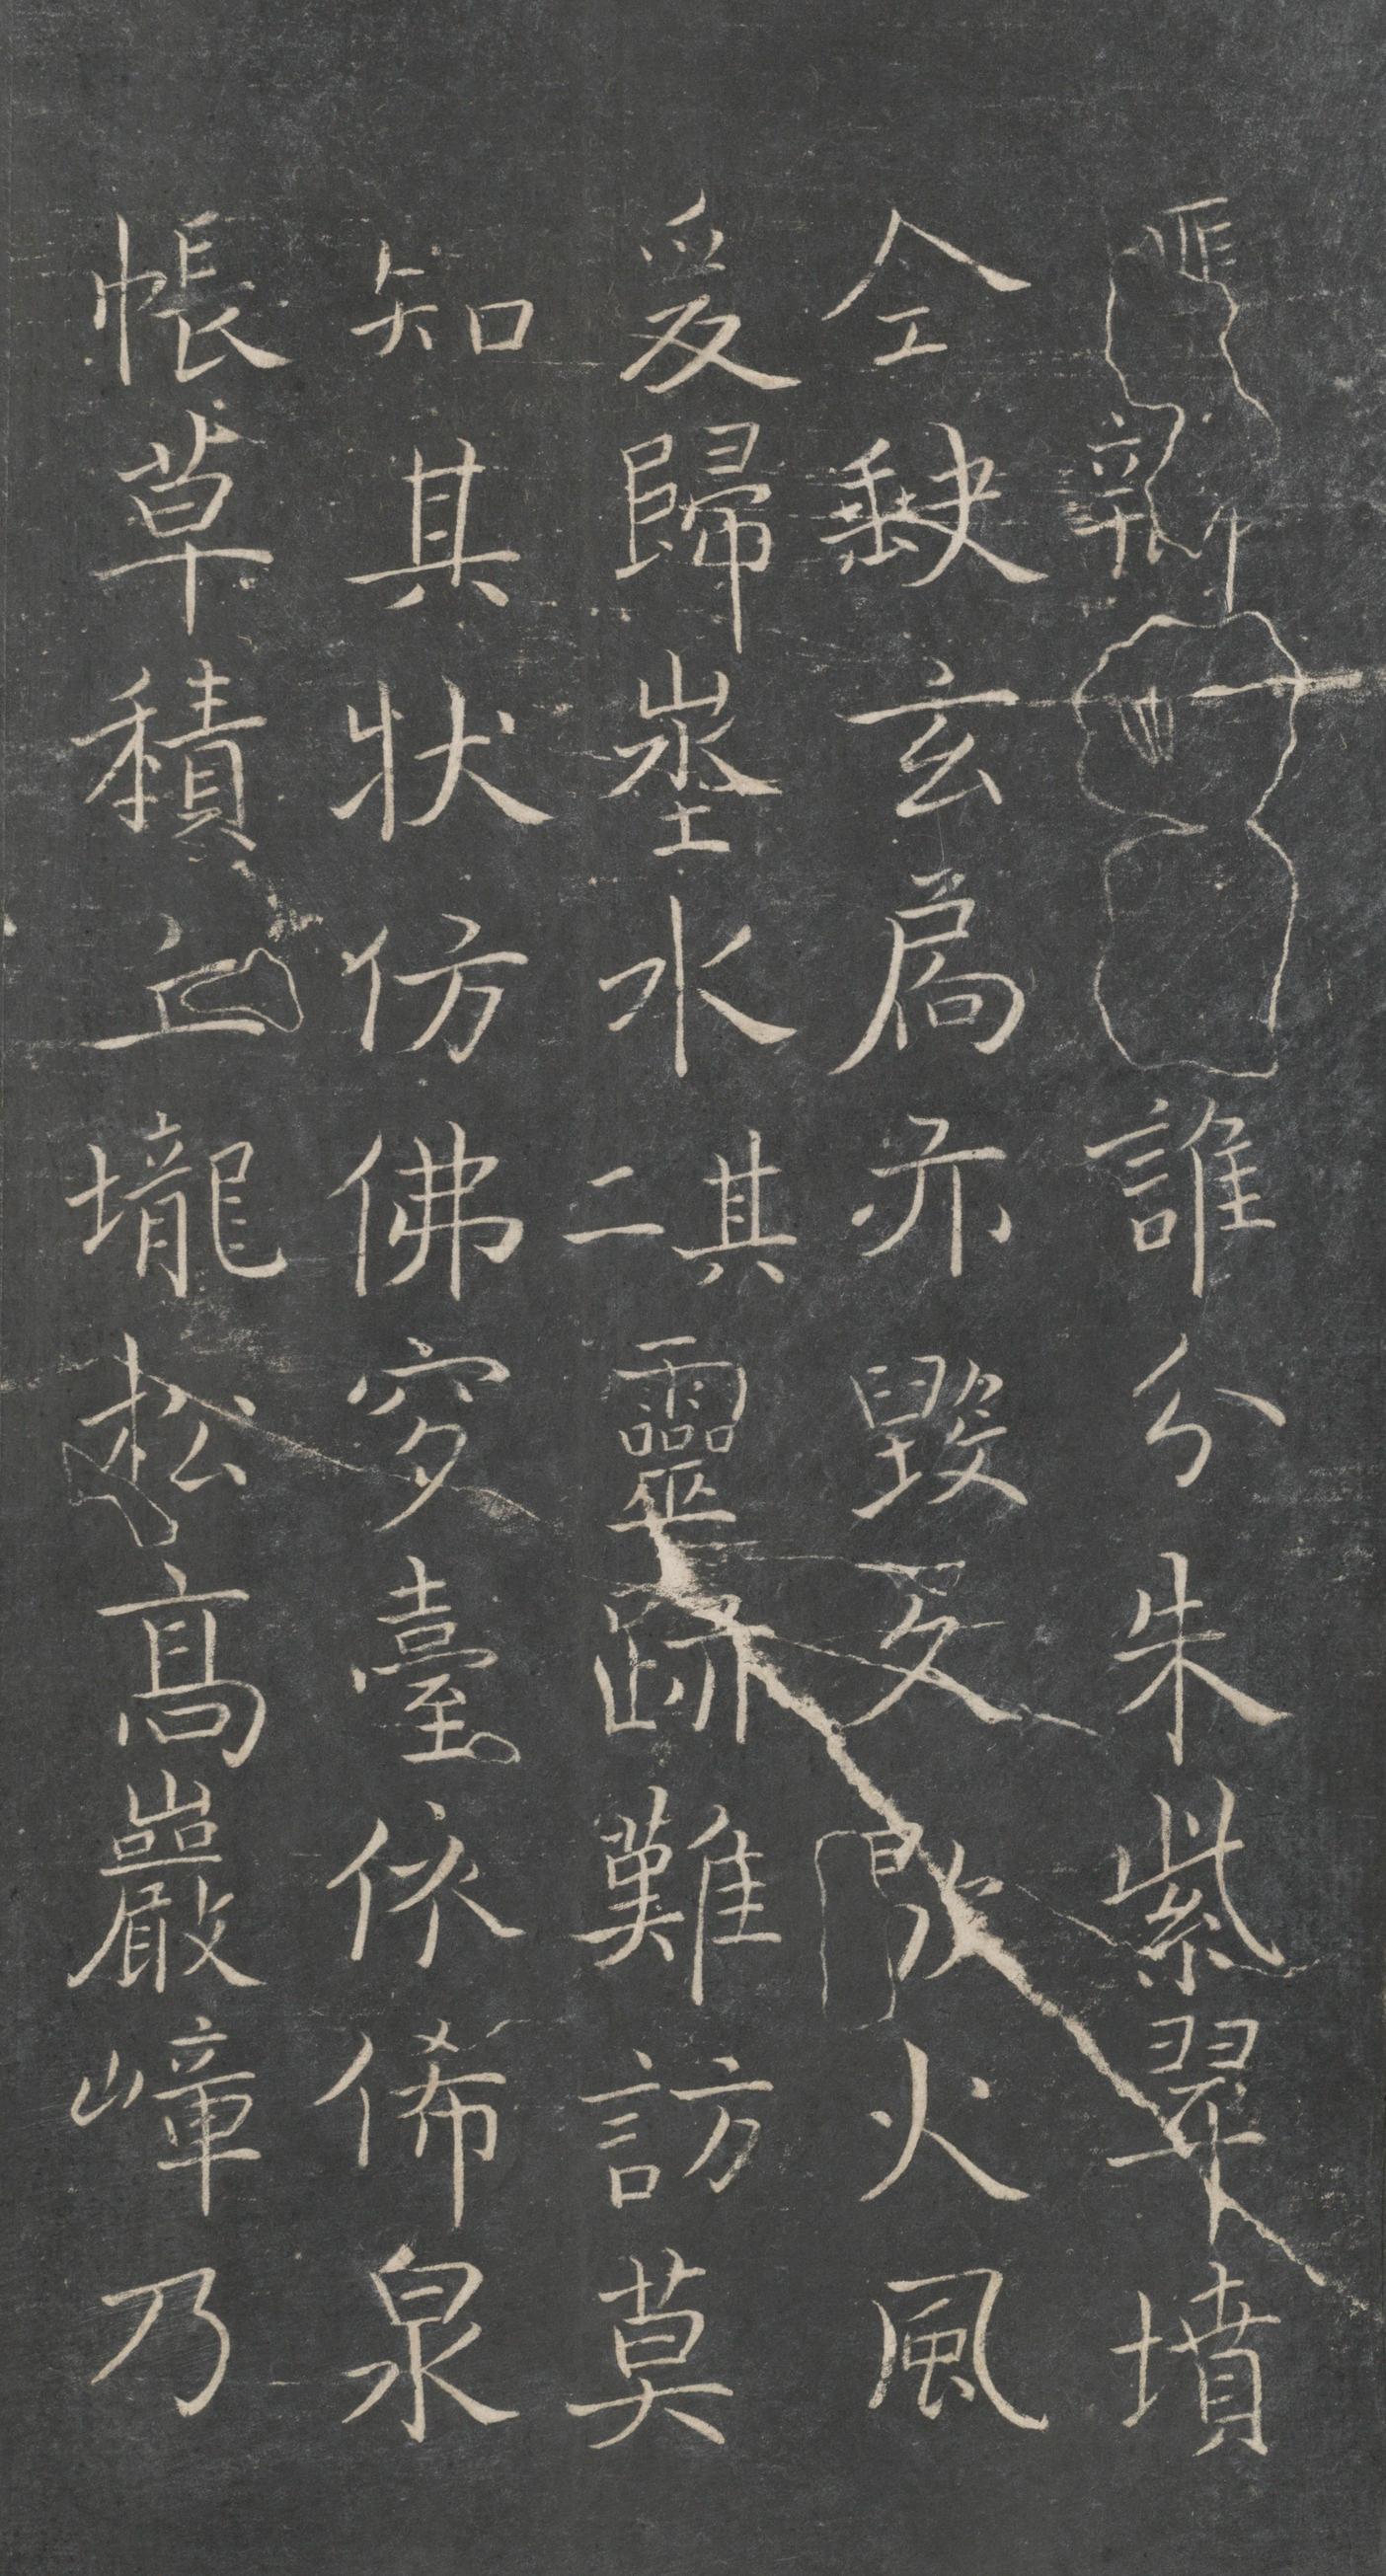 誰分朱紫翠墳
仝缺玄扃亦毀火風
爰歸埊水其二靈跡難訪莫
知其狀仿佛穸臺依俙泉
帳草積丘壠松高巖嶂乃